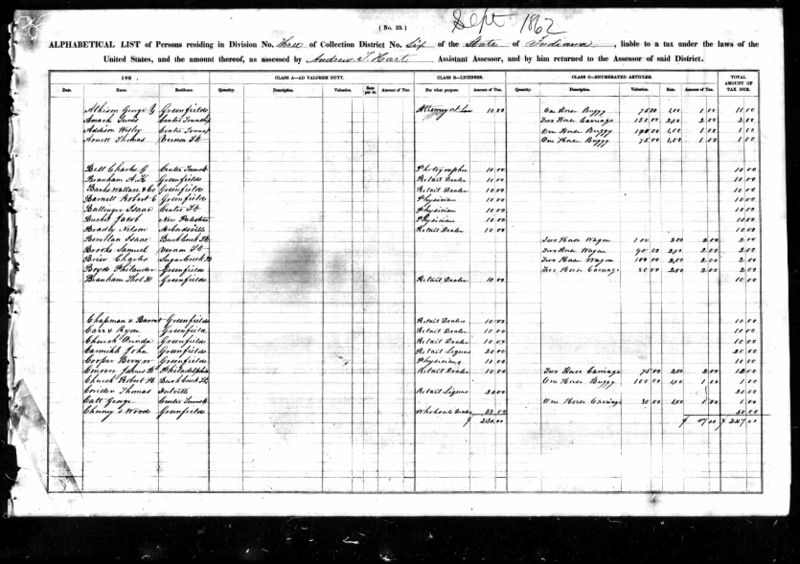 Sept 1862
( No. 23. )
ALPHABETICAL LIST of Persons residing in Division No. Three of Collection District No. Six of the State of Indiana, liable to a tax under the laws of the
United States, and the amount thereof, as assessed by Andrew T. Hart Assistant Assessor, and by him returned to the Assessor of said District.
186 . CLASS A—AD VALOREM DUTY. CLASS B—LICENSES. CLASS C—ENUMERATED ARTICLES. TOTAL AMOUNT OF TAX DUE.
Date. Name. Residence. Quantity. Description. Valuation. Rate per ct. Amount of Tax. For what purpose. Amount of Tax. Quantity. Description. Valuation. Rate. Amount of Tax.
Athison George Greenfields Attorney at Law 10.00 One Horse Buggy 75.00 1.00 1.00 11.00
Center Township Two Horse Carriage 150.00 2.00 2.00 2.00
Addison Wesley Center Towns One Horse Buggy 1.00 1.00 1.00
Arnett Thomas Vernon Ts One Horse Buggy 75.00 1.00 1.00 1.00
Bell Charles G Center Towns Photographer 10.00 10.00
Branham A.K Greenfields Retail Dealer 10.00 10.00
Banks Wallace & Co Greenfields Retail Dealer 10.00 10.00
Barnett Robert E Greenfields Physician 10.00 10.00
Ballenger Isaac Center Ts Physician 10.00 10.00
Jacob New Palestine Physician 10.00 10.00
Bradly Nelson Retail Dealer 10.00 10.00
Isaac Buck Creek Ts Two Horse Wagon 2.00 2.00 2.00
Brooks Samuel Vernon Ts Two Horse Wagon 90.00 2.00 2.00 2.00
Brier Charles Sugar Creek Two Horse Wagon 100.00 2.00 2.00 2.00
Boyds Philander Greenfields Two Horse Carriage 80.00 2.00 2.00 2.00
Branham Thos H Greenfields Retail Dealer 10.00 10.00
Chapman & Barnet Greenfields Retail Dealer 10.00 10.00
Carr & Ryon Greenfields Retail Dealer 10.00 10.00
Church Greenfields Retail Dealer 10.00 10.00
John Greenfields Retail Liquors 20.00 20.00
Cooper Greenfields Physician 10.00 10.00
Conover James B Philadelphia Retail Dealer 10.00 Two Horse Carriage 75.00 2.00 2.00 12.00
Church Robert H Buck Creek Ts One Horse Buggy 100.00 1.00 1.00 1.00
Thomas Retail Liquors 20.00
Catt George Center Towns One Horse Carriage 80.00 1.00 1.00 1.00
Woods Greenfields Wholesale Dealer
$ 230.00 $ 17.00 $ 247.00